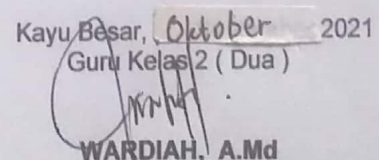 Kayu Besar, Oktober 2021
Guru Kelas 2 ( Dua )
WARDIAH, A.Md